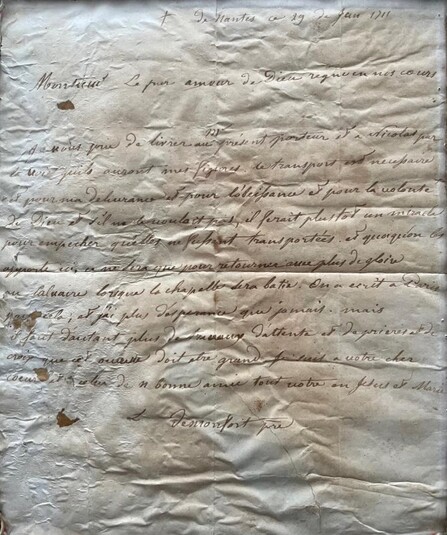 † de nantes ce 29 de Janv 1711
Monsieur Le pur amour de Dieu regne en nos cœurs
Je vous prie de livrer au présent porteur et a Nicolas par
quils auront mes figures. ce transport est necessaire
et pour ma delivrance et pour lobeissance et pour la volonte
de Dieu et s'il ne le vouloit pas, il ferait plustot un miracle
pour empecher quelles ne fussent transportées. et quoiquon les
apporte ici, ce ne sera que pour retourner avec plus de gloire
au Calvaire lorsque la chapelle sera batie. On a ecrit a
cela, et jai plus desperance que jamais. mais
il faut dautant plus de dattente et de prieres et de
croix que cet ouvrage doit etre grand. je suis a votre cher
coeur et celui de n. bonne amie tout votre en Jesus et
L de Monfort pre